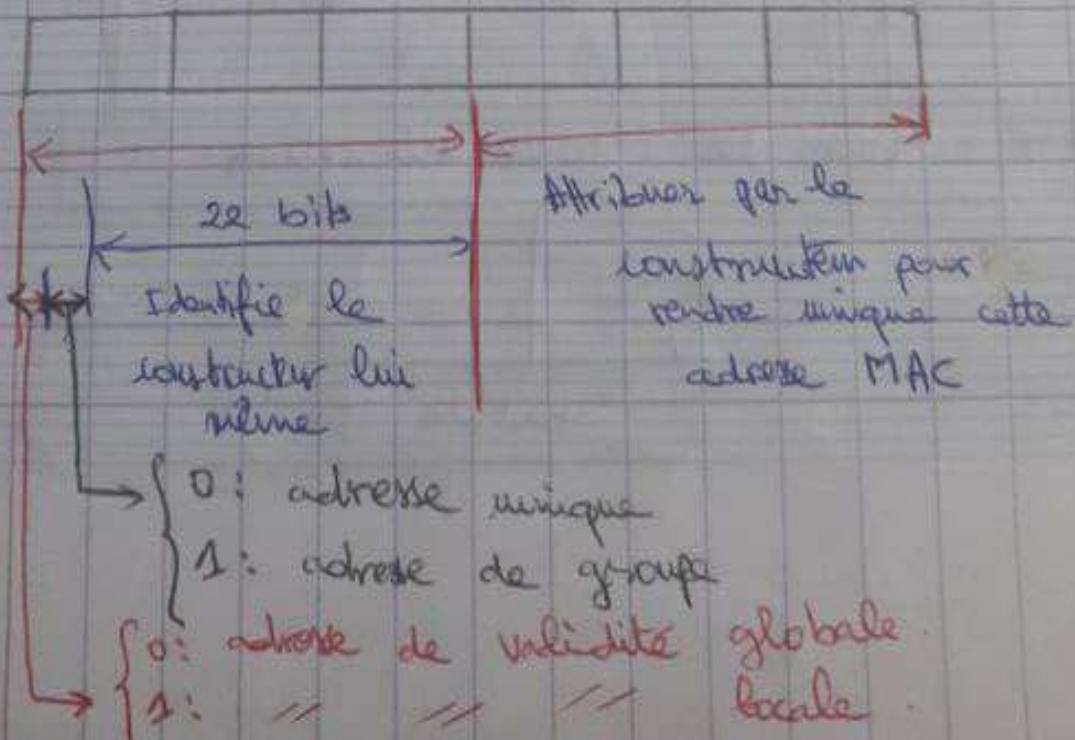 22 bits
Identifie le
constructeur lui
même
Attribuer par le
constructeur pour
rendre unique cette
adresse MAC
0 : adresse unique
1 : adresse de groupe
0 : adresse de validité globale.
1 : // // // locale.